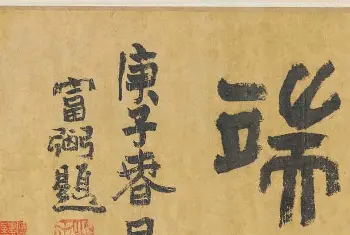 端
庚子春日
富弼題